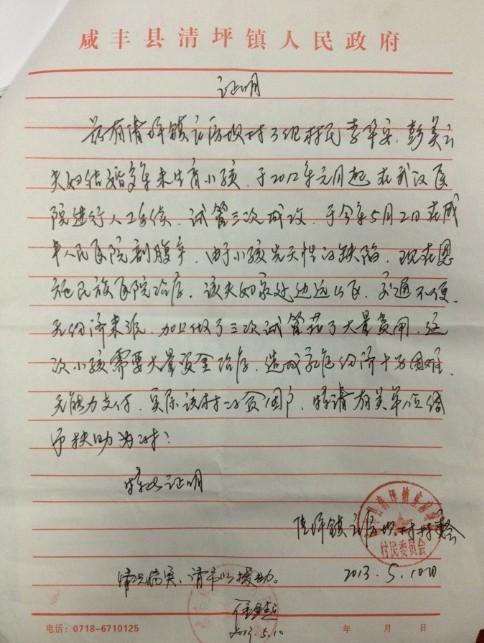 咸丰县清坪镇人民政府
证明
兹有清坪镇 村 组村民李平安、彭美
夫妇结婚多年未生育小孩，于2012年元月起在武汉医
院进行人工手续，试管三次成功，于今年5月2日在咸
丰人民医院剖腹产，由于小孩先天性 缺陷，现在恩
施民族医院治疗，该夫妇家处边远山区，交通不便，
无经济来源，加上做了三次试管花了大量费用，这
次小孩需要大量资金治疗，造成家色经济十分困难，
无能力支付，实际该村 贫困户，特请有关单位给
予扶助为
特此证明
清坪镇 村村委会
村民委员会
2013.5.10日
情况属实，请予以援助。
2013.5.10
电话：0718-6710125 年 月 日